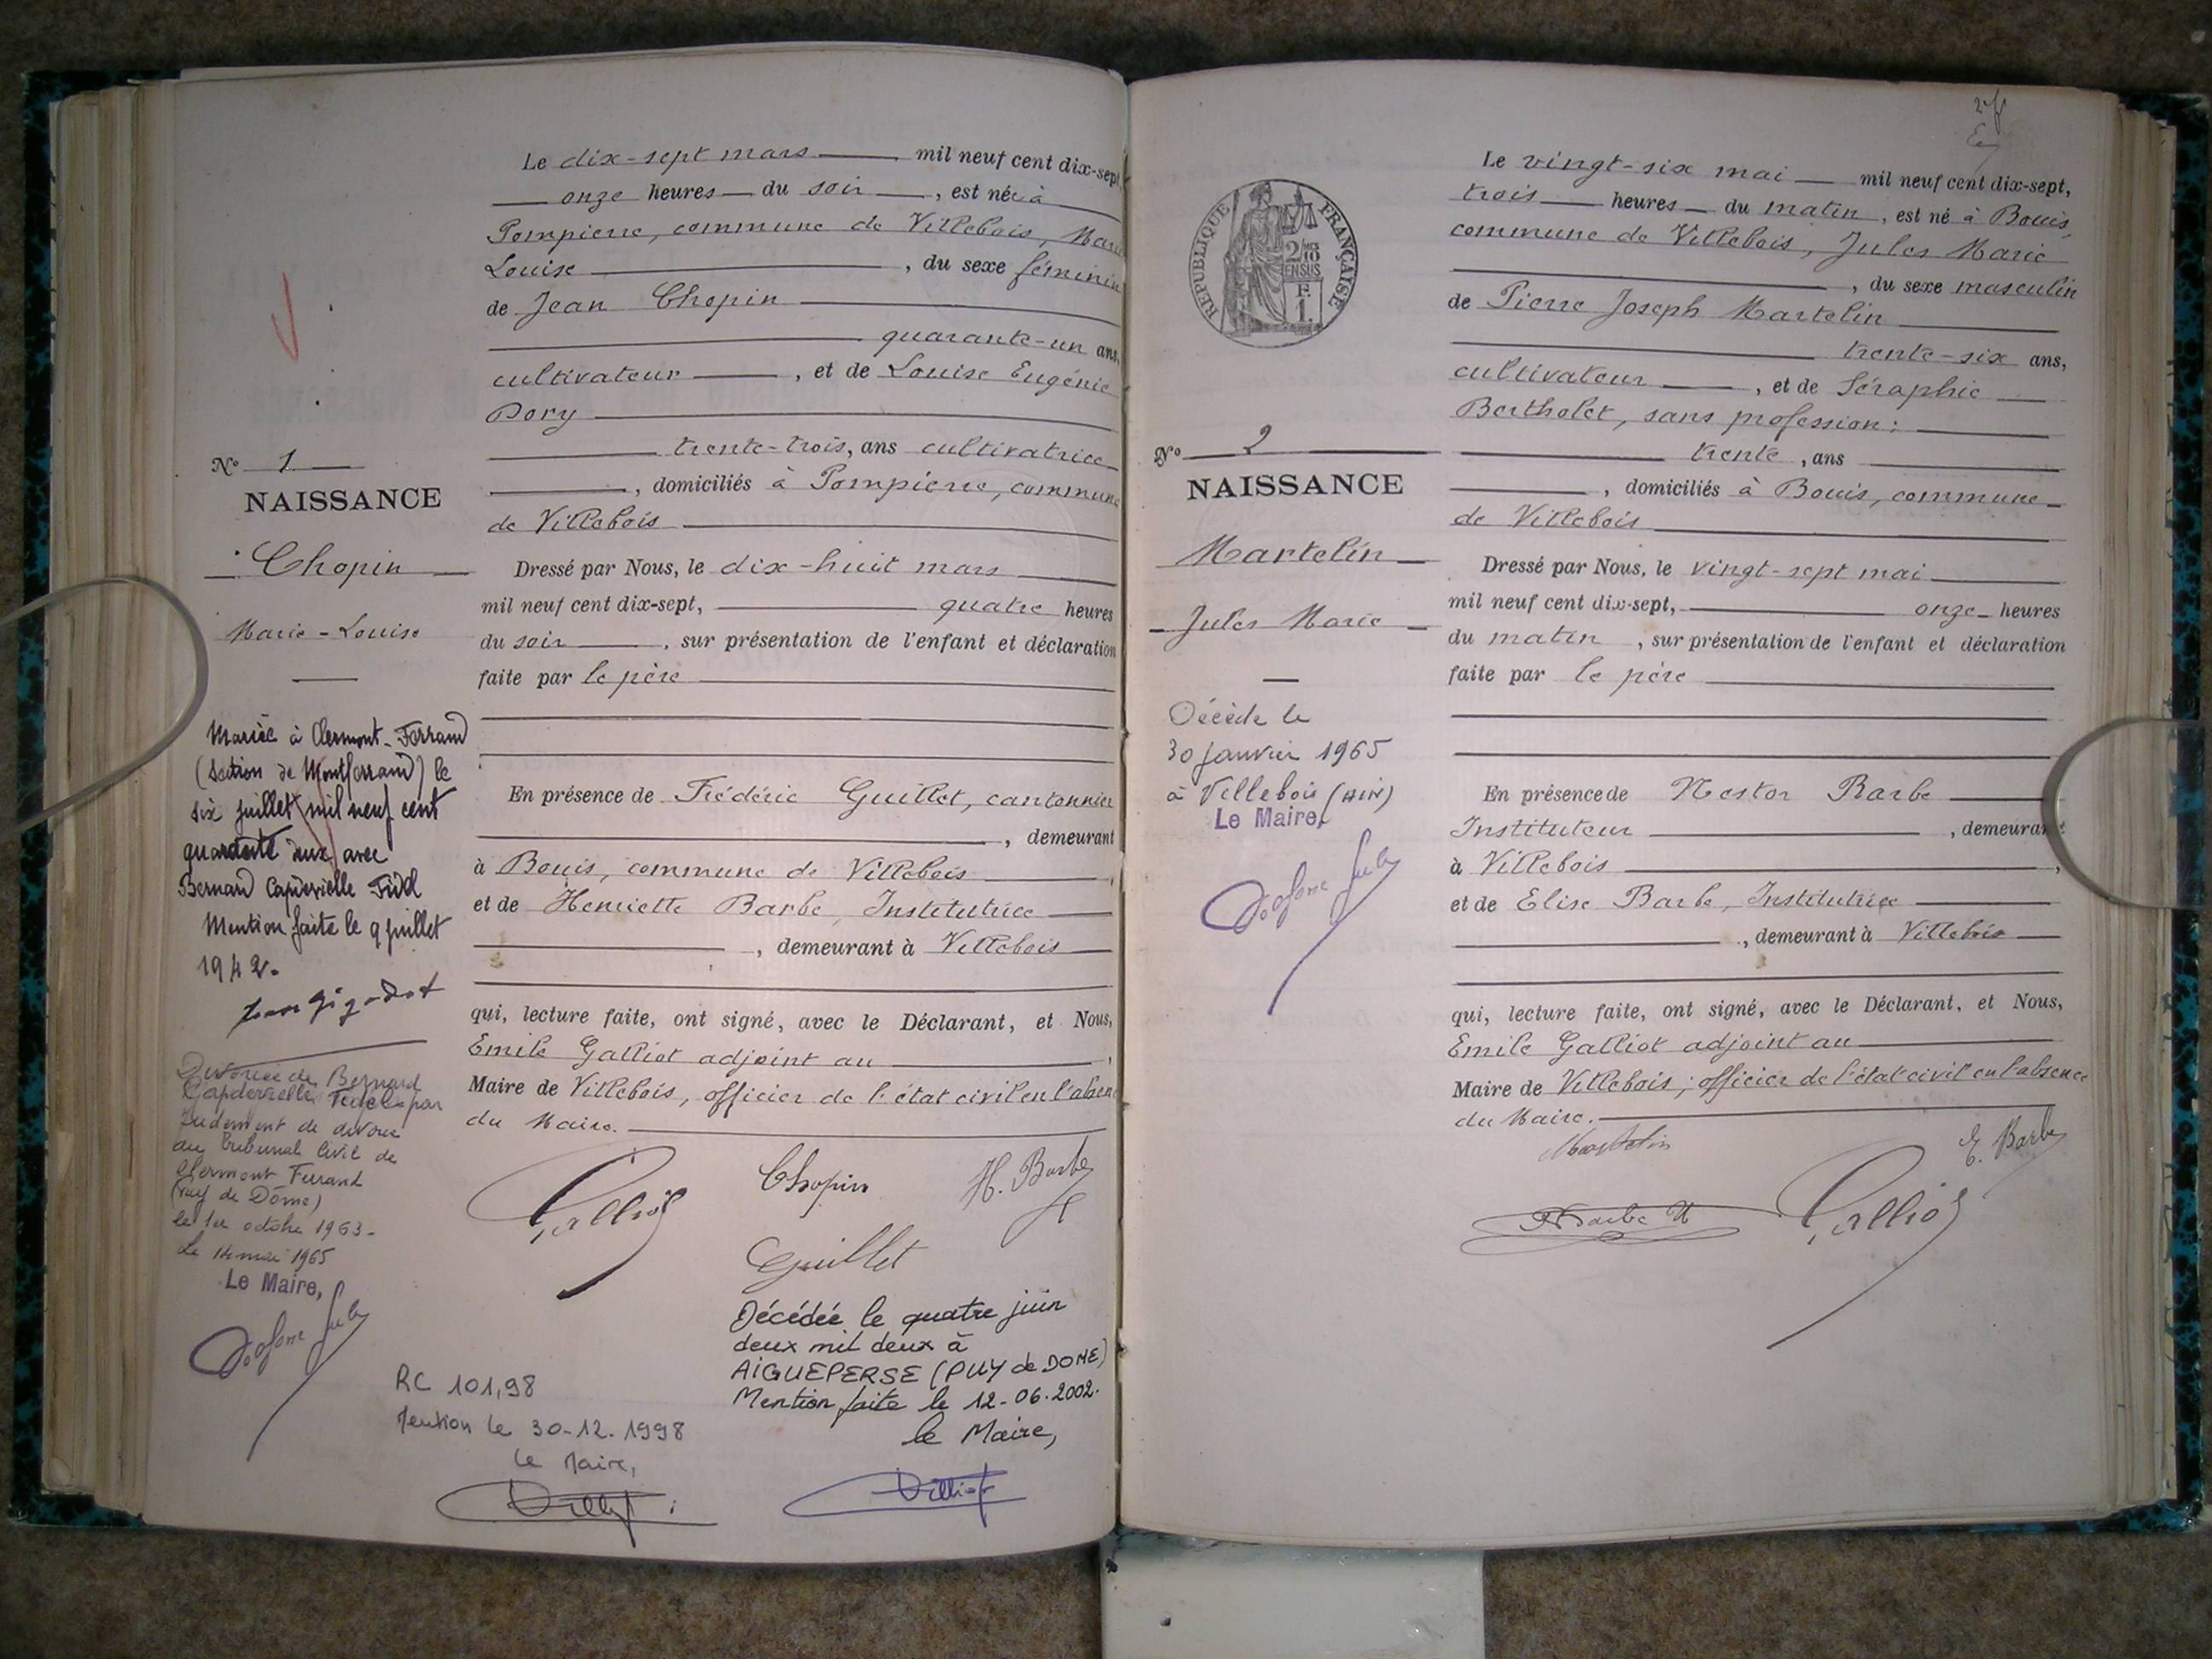 Le dix-sept mars mil neuf cent dix-sept
onze heures du soir, est née à
Pompierre, commune de Villebois, Marie
Louise, du sexe féminin
de Jean Chopin
quarante-un ans,
cultivateur, et de Louise Eugénie
Dory
trente-trois, ans cultivatrice
, domiciliés à Pompierre, commune
de Villebois
Dressé par Nous, le dix-huit mars
mil neuf cent dix-sept, quatre heures
du soir, sur présentation de l'enfant et déclaration
faite par le père
En présence de Frédéric Guillet, cantonnier
, demeurant
à Bouis, commune de Villebois
et de Henriette Barbe, Institutrice
, demeurant à Villebois
qui, lecture faite, ont signé, avec le Déclarant, et Nous,
Emile Galliot adjoint au
Maire de Villebois, officier de l'état civil en l'absence
du Maire.
Galliot
Chopin
H. Barbe
Guillet
Décédée le quatre juin
deux mil deux à
AIGUEPERSE (PUY de DOME)
Mention faite le 12-06-2002.
le Maire,
RC 101,98
Mention le 30-12-1998
Le Maire,
N° 1
NAISSANCE
Chopin
Marie-Louise
Mariée à Clermont-Ferrand
(Section de Montferrand) le
six juillet mil neuf cent
quarante deux avec
Bernard Capdevielle Fidel
Mention faite le 9 juillet
1942.
Divorcée de Bernard
Capdevielle Fidel par
Judement de divorce
du Tribunal Civil de
Clermont Ferrand
(Puy de Dôme)
le 1er octobre 1963-
Le 14 mai 1965
Le Maire,
N° 2
NAISSANCE
Martelin
Jules Marie
Décédé le
30 janvier 1965
à Villebois (AIN)
Le Maire,
REPUBLIQUE FRANÇAISE
2/10
EN SUS
F.
1.
Le vingt-six mai mil neuf cent dix-sept,
trois heures du matin, est né à Bouis,
commune de Villebois, Jules Marie
, du sexe masculin
de Pierre Joseph Martelin
trente-six ans,
cultivateur, et de Séraphie
Bertholet, sans profession;
trente, ans
, domiciliés à Bouis, commune
de Villebois
Dressé par Nous, le vingt-sept mai
mil neuf cent dix-sept, onze heures
du matin, sur présentation de l'enfant et déclaration
faite par le père
En présence de Nestor Barbe
Instituteur, demeurant
à Villebois,
et de Elise Barbe, Institutrice
, demeurant à Villebois
qui, lecture faite, ont signé, avec le Déclarant, et Nous,
Emile Galliot adjoint au
Maire de Villebois, officier de l'état civil en l'absence
du Maire.
Martelin
E. Barbe
Galliot